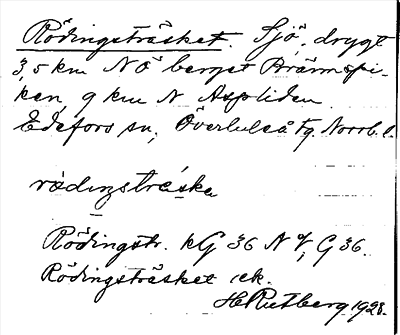 Rödingsträsket. Sjö, drygt
3,5 km NÖ berget Brännspi-
ken, 9 km N Aspliden.
Edefors sn, Överluleå Fg. Norrb. l.
rødiŋstrɛ́ska
Rödingstr. kG 36 N G 36.
Rödingsträsket ek.
H Rutberg 1928.